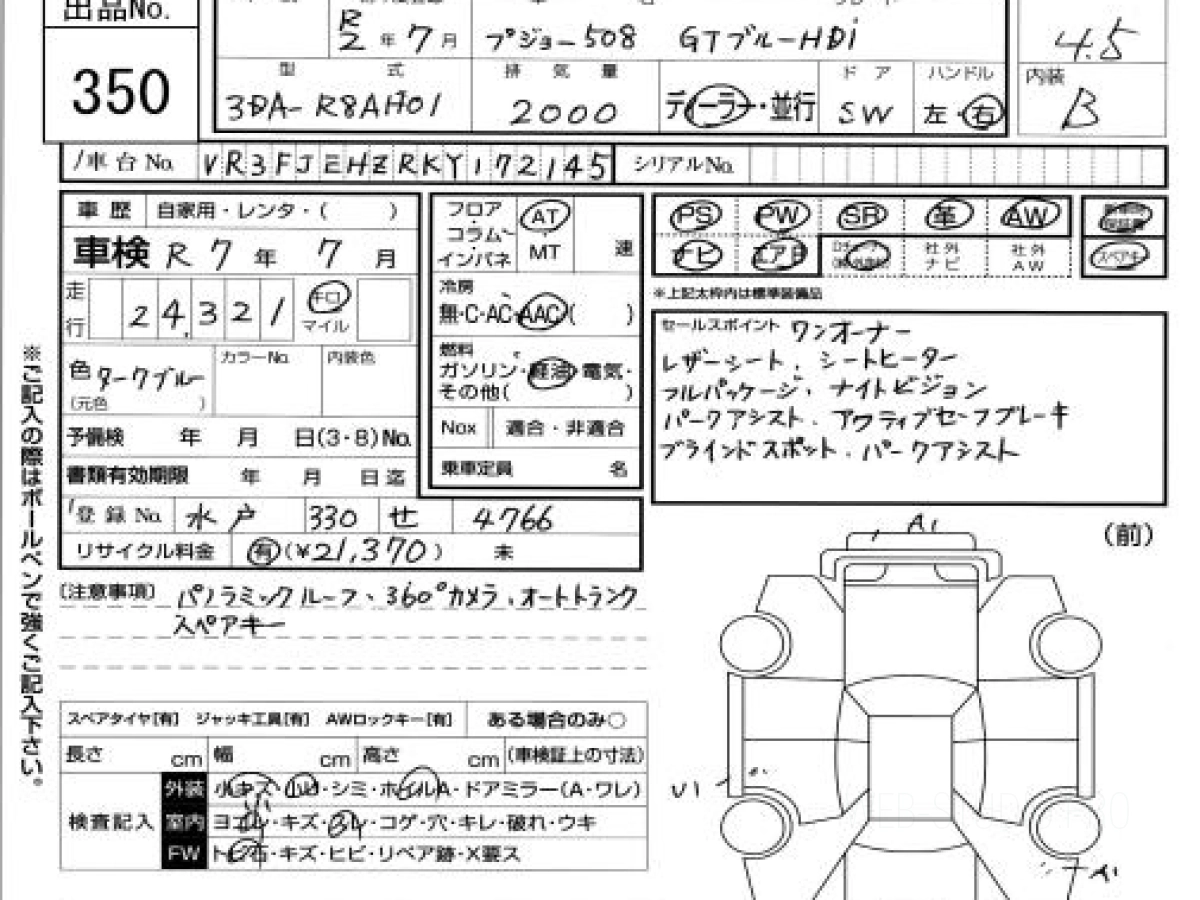 出品No.
350
R2年7月 プジョー508 GTブルーHDi
4.5
型式 3DA-R8AH01
排気量 2000
ディーラー・並行
ドア SW
ハンドル 左・右
内装 B
車台No. VR3FJEHZRKY172145 シリアルNo.
車歴 自家用・レンタ・( )
車検 R7年7月
走行 24.321 キロ マイル
色 ダークブルー カラーNo. 内装色
(元色 )
予備検 年 月 日(3・8)No.
書類有効期限 年 月 日迄
登録No. 水戸 330 せ 4766
リサイクル料金 有(¥21,370) 未
フロア・コラム・インパネ AT・MT 速
冷房
無・C・AC・AAC( )
燃料
ガソリン・軽油・電気・
その他( )
Nox 適合・非適合
乗車定員 名
PS PW SR 革 AW
ナビ エアB 社外ナビ 社外AW スペアキー
※上記太枠内は標準装備品
セールスポイント ワンオーナー
レザーシート、シートヒーター
フルパッケージ、ナイトビジョン
パークアシスト、アクティブセーフブレーキ
ブラインドスポット、パークアシスト
[注意事項] パノラミックルーフ、360°カメラ、オートトランク
スペアキー
スペアタイヤ[有] ジャッキ工具[有] AWロックキー[有] ある場合のみ○
長さ cm 幅 cm 高さ cm (車検証上の寸法)
検査記入
外装 小キズ・小凹・シミ・ホイルA・ドアミラー(A・ワレ)
室内 ヨゴレ・キズ・スレ・コゲ・穴・キレ・破れ・ウキ
FW トビ石・キズ・ヒビ・リペア跡・X要ス
(前)
A1
U1
A1
※ご記入の際はボールペンで強くご記入下さい。